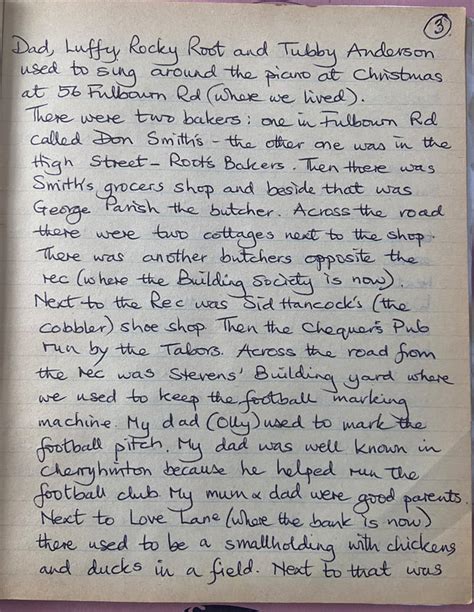 3
Dad, Luffy, Rocky Root and Tubby Anderson
used to sing around the piano at Christmas
at 56 Fulbourn Rd (where we lived).
There were two bakers: one in Fulbourn Rd
called Don Smith's - the other one was in the
High Street - Roots Bakers. Then there was
Smith's grocers shop and beside that was
George Parish the butcher. Across the road
there were two cottages next to the shop.
There was another butchers opposite the
rec (where the Building Society is now).
Next to the Rec was Sid Hancock's (the
cobbler) shoe shop. Then the Chequers Pub
run by the Tabors. Across the road from
the rec was Stevens' Building yard where
we used to keep the football marking
machine. My dad (Olly) used to mark the
football pitch. My dad was well known in
Cherryhinton because he helped run the
football club. My mum & dad were good parents.
Next to Love Lane (where the bank is now)
there used to be a smallholding with chickens
and ducks in a field. Next to that was